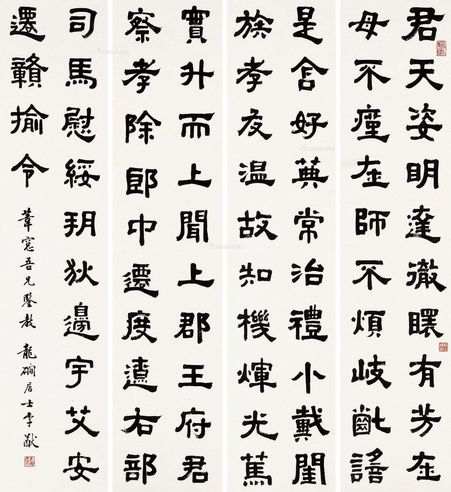 君天姿明達徹曜有芳在
母不瘽在師不煩岐齔謠
是含好典常治禮小戴閨
族孝友温故知機煇光篤
實升而上聞上郡王府君
察孝除郎中遷度遼右部
司馬慰綏朔狄邊宇艾安
遷贛揄令
葦窓吾兄鑒教 龍磵居士李猷